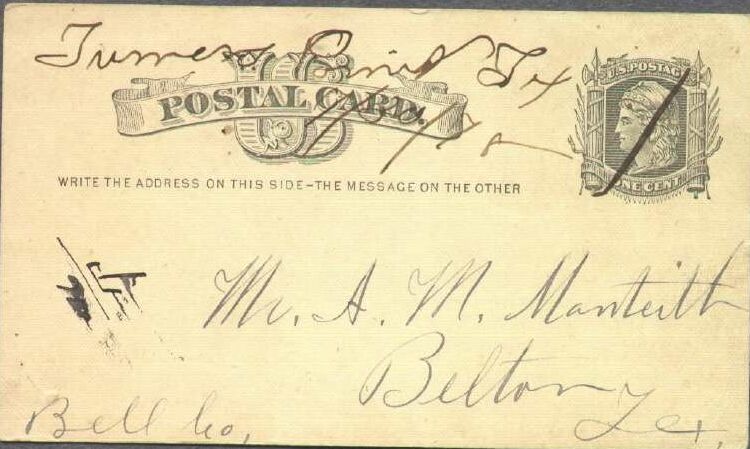 Turners Point Tx
U.S. POSTAGE
POSTAL CARD.
ONE CENT
WRITE THE ADDRESS ON THIS SIDE-THE MESSAGE ON THE OTHER
Mr. A. M. Monteith
Belton
Bell Co, Tex,